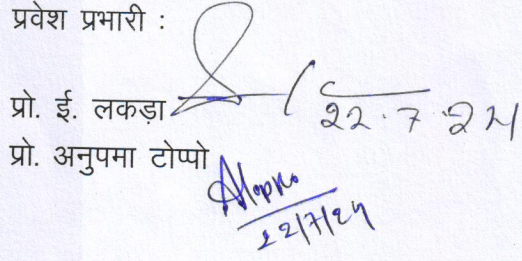 प्रवेश प्रभारी :
प्रो. ई. लकड़ा
22.7.24
प्रो. अनुपमा टोप्पो
22/7/24